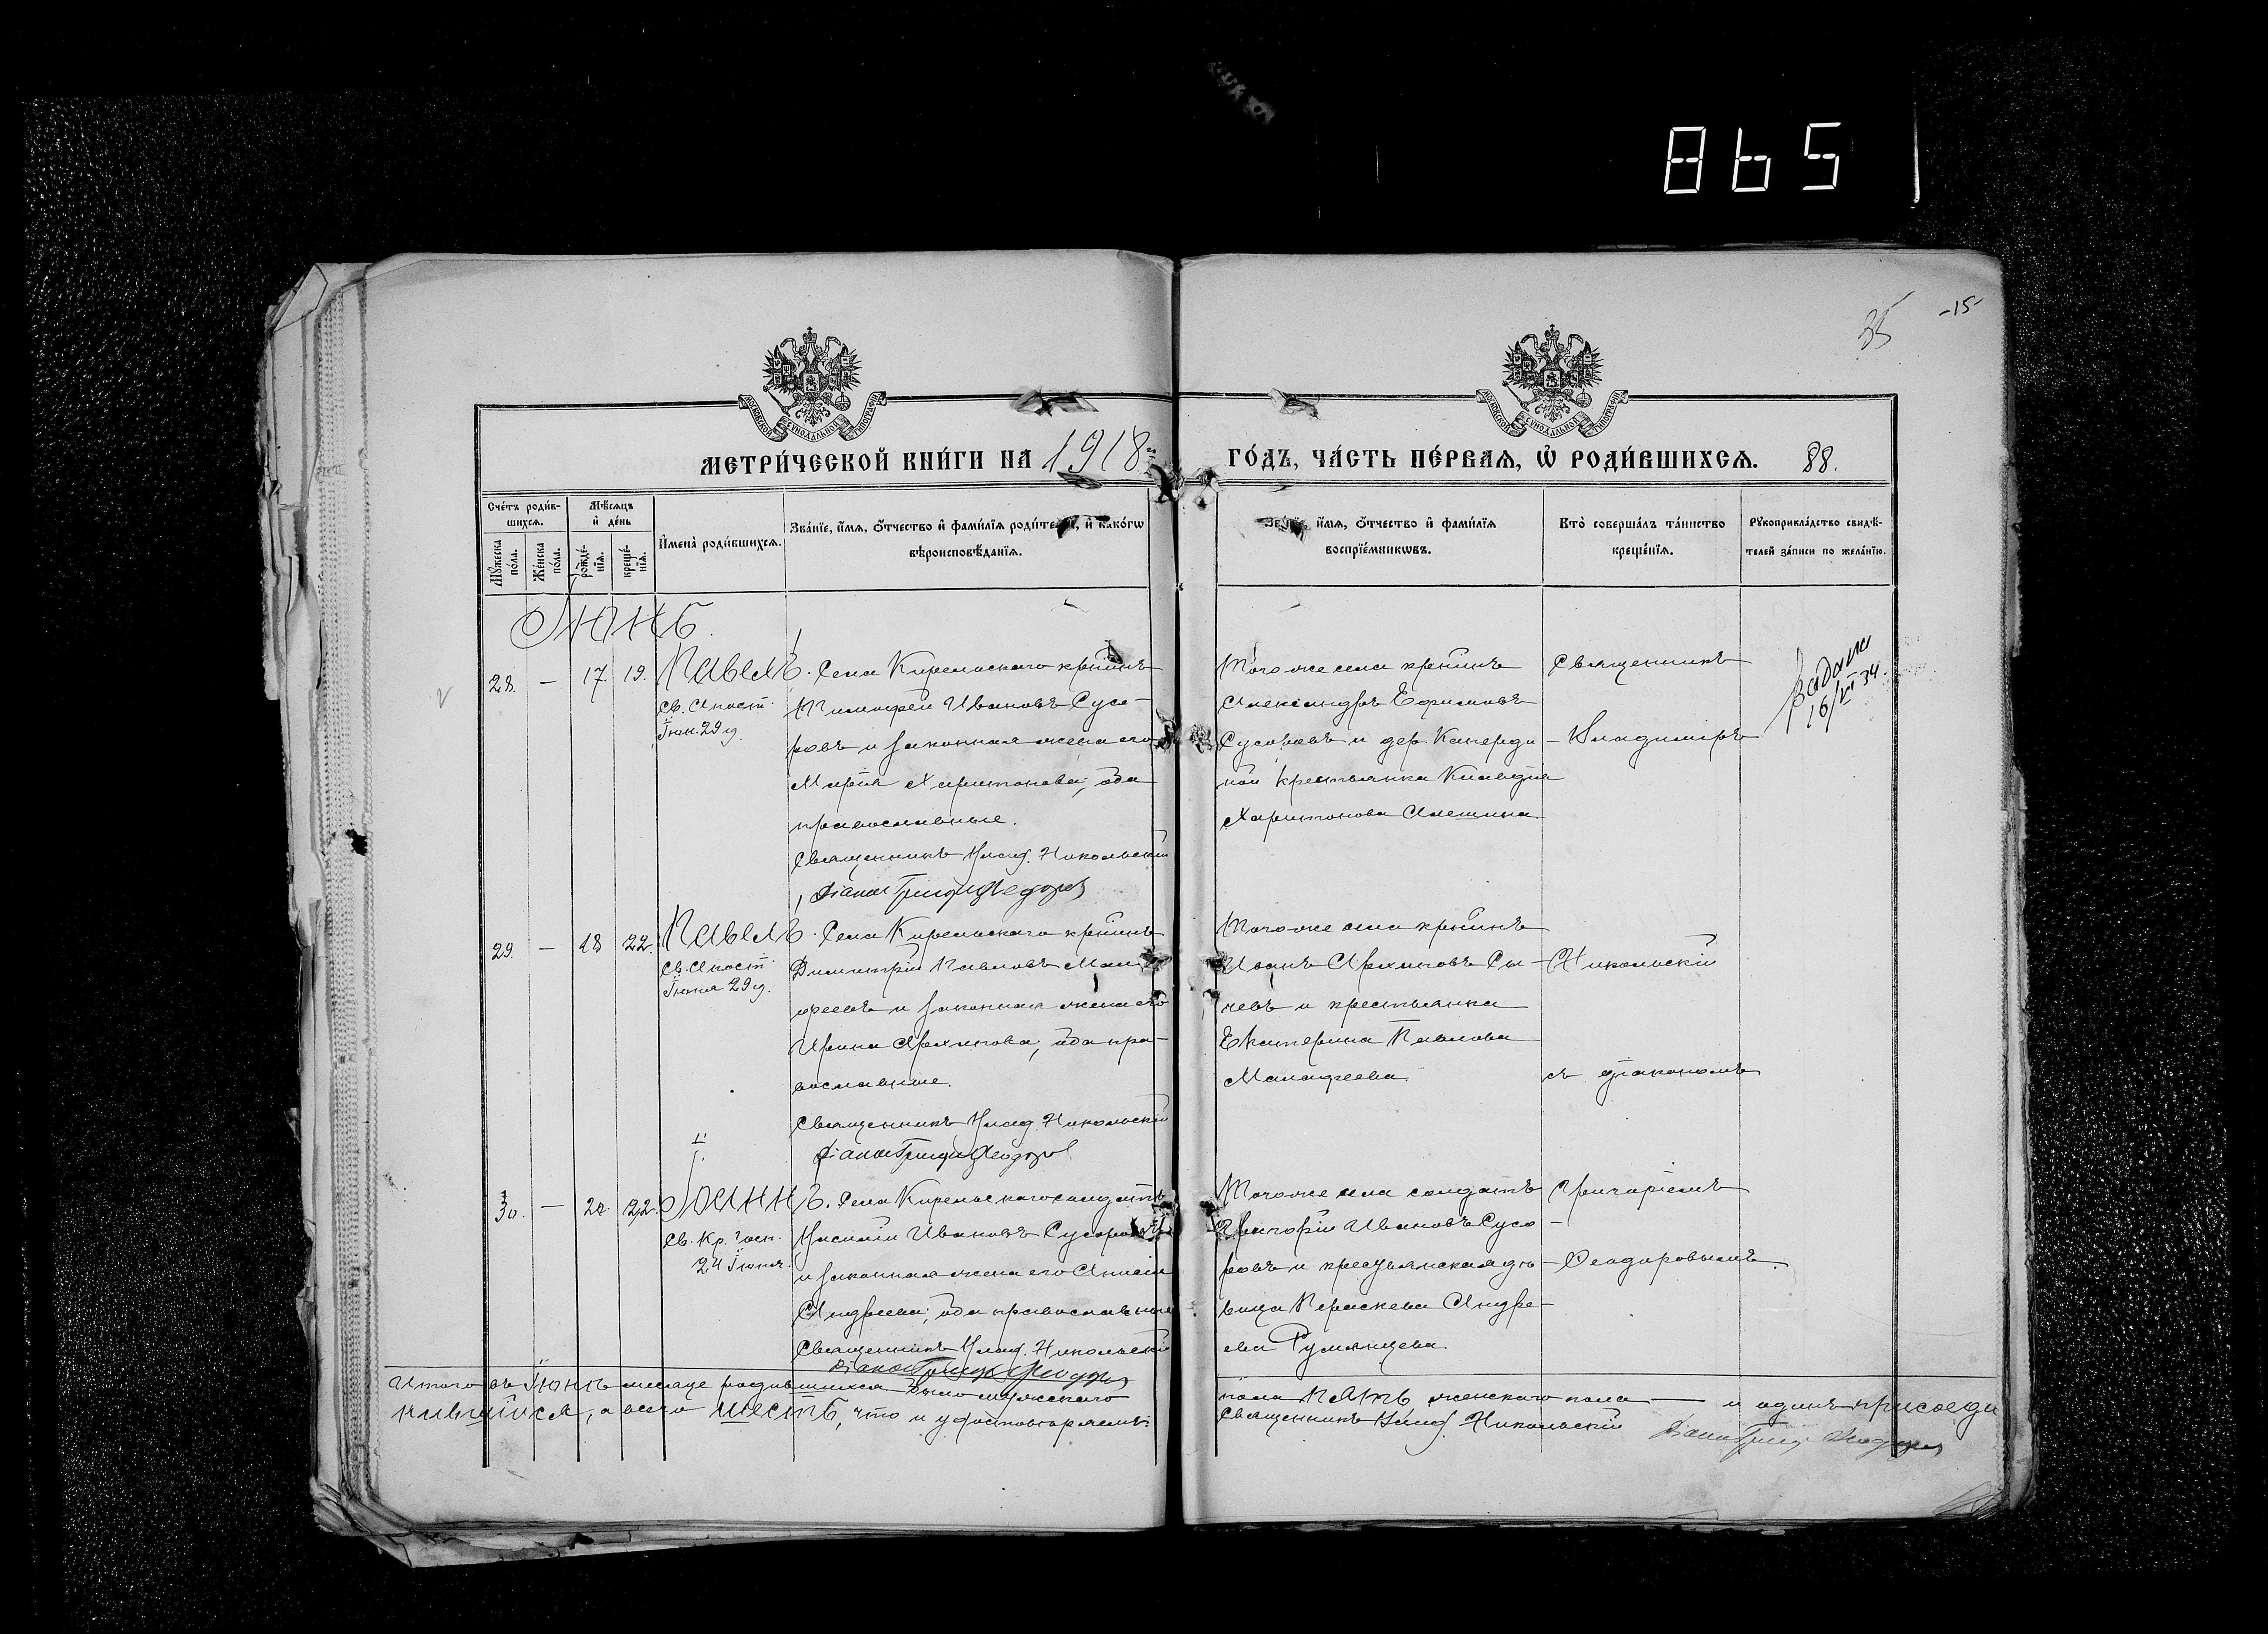 865
35
-15-
МОСКОВСКОЙ СѴНОДАЛЬНОЙ ТИПОГРАФІИ
МОСКОВСКОЙ СѴНОДАЛЬНОЙ ТИПОГРАФІИ
МЕТРИ́ЧЕСКОЙ КНИ́ГИ НА 1918
ГО́ДЪ, ЧА́СТЬ ПЕ́РВАЯ, Ѡ РОДИ́ВШИХСЯ. 88.
Сче́тъ роди́в-
шихся.
Мꙋ́жеска по́ла.
Же́нска по́ла.
Мѣ́сяцъ
и҆ де́нь
рожде́-нїя.
креще́-нїя.
И҆мена̀ роди́вшихся.
Зва́нїе, и҆́мя, ѻ҆́тчество и҆ фами́лїя роди́телей, и҆ како́гѡ
вѣроисповѣ́данїя.
Зва́нїе, и҆́мя, ѻ҆́тчество и҆ фами́лїя
воспрїе́мникѡвъ.
Кто̀ соверша́лъ та́инство
креще́нїя.
Рꙋкоприкла́дство свидѣ́-
телей за́писи по жела́нїю.
Іюнь.
28. — 17. 19. Павелъ.
Св. Апост.
Іюн. 29 д.
Села Кирельскаго кр-нинъ
Тимофей Ивановъ Сусо-
ровъ и законная жена его
Марія Харитонова, оба
православные.
Священникъ Влад. Никольскій
Діаконъ Григ. Ѳеодоров
Того же села кр-нинъ
Александръ Ефимовъ
Сусоровъ и дер.
ной крестьянка Клавдія
Харитонова Алешина
Священникъ
Владиміръ
Выдана
16/VI 34.
29. — 18 22. Павелъ.
Св. Апост.
Іюня 29 д.
Села Кирельскаго кр-нинъ
Димитрій Павловъ Мала-
феевъ и законная жена его
Ирина Архипова, оба пра-
вославные.
Священникъ Влад. Никольскій
Діаконъ Григ. Ѳеодоров
Того же села кр-нинъ
Иванъ Архиповъ Сы-
чевъ и крестьянка
Екатерина Павлова
Малафеева.
Никольскій
съ діакономъ
30. — 20. 22. Іоаннъ.
Св. Кр. Госп.
24 Іюня.
Села Кирельскаго солдатъ
Василій Ивановъ Сусоровъ
и законная жена его Анисія
Андреева, оба православные
Священникъ Влад. Никольскій
Діаконъ Григ. Ѳеодоров
Того же села солдатъ
Григорій Ивановъ Сусо-
ровъ и крестьянская дѣ-
вица Параскева Андре-
ева Румянцева.
Григоріемъ
Ѳеодоровымъ.
Итого въ Іюнѣ мѣсяцѣ родившихся было мужского
пола пять, женского пола — и одинъ присоеди
нившійся, а всего шесть, что и удостовѣряемъ:
Священникъ Влад. Никольскій
Діаконъ Григ. Ѳеодоров